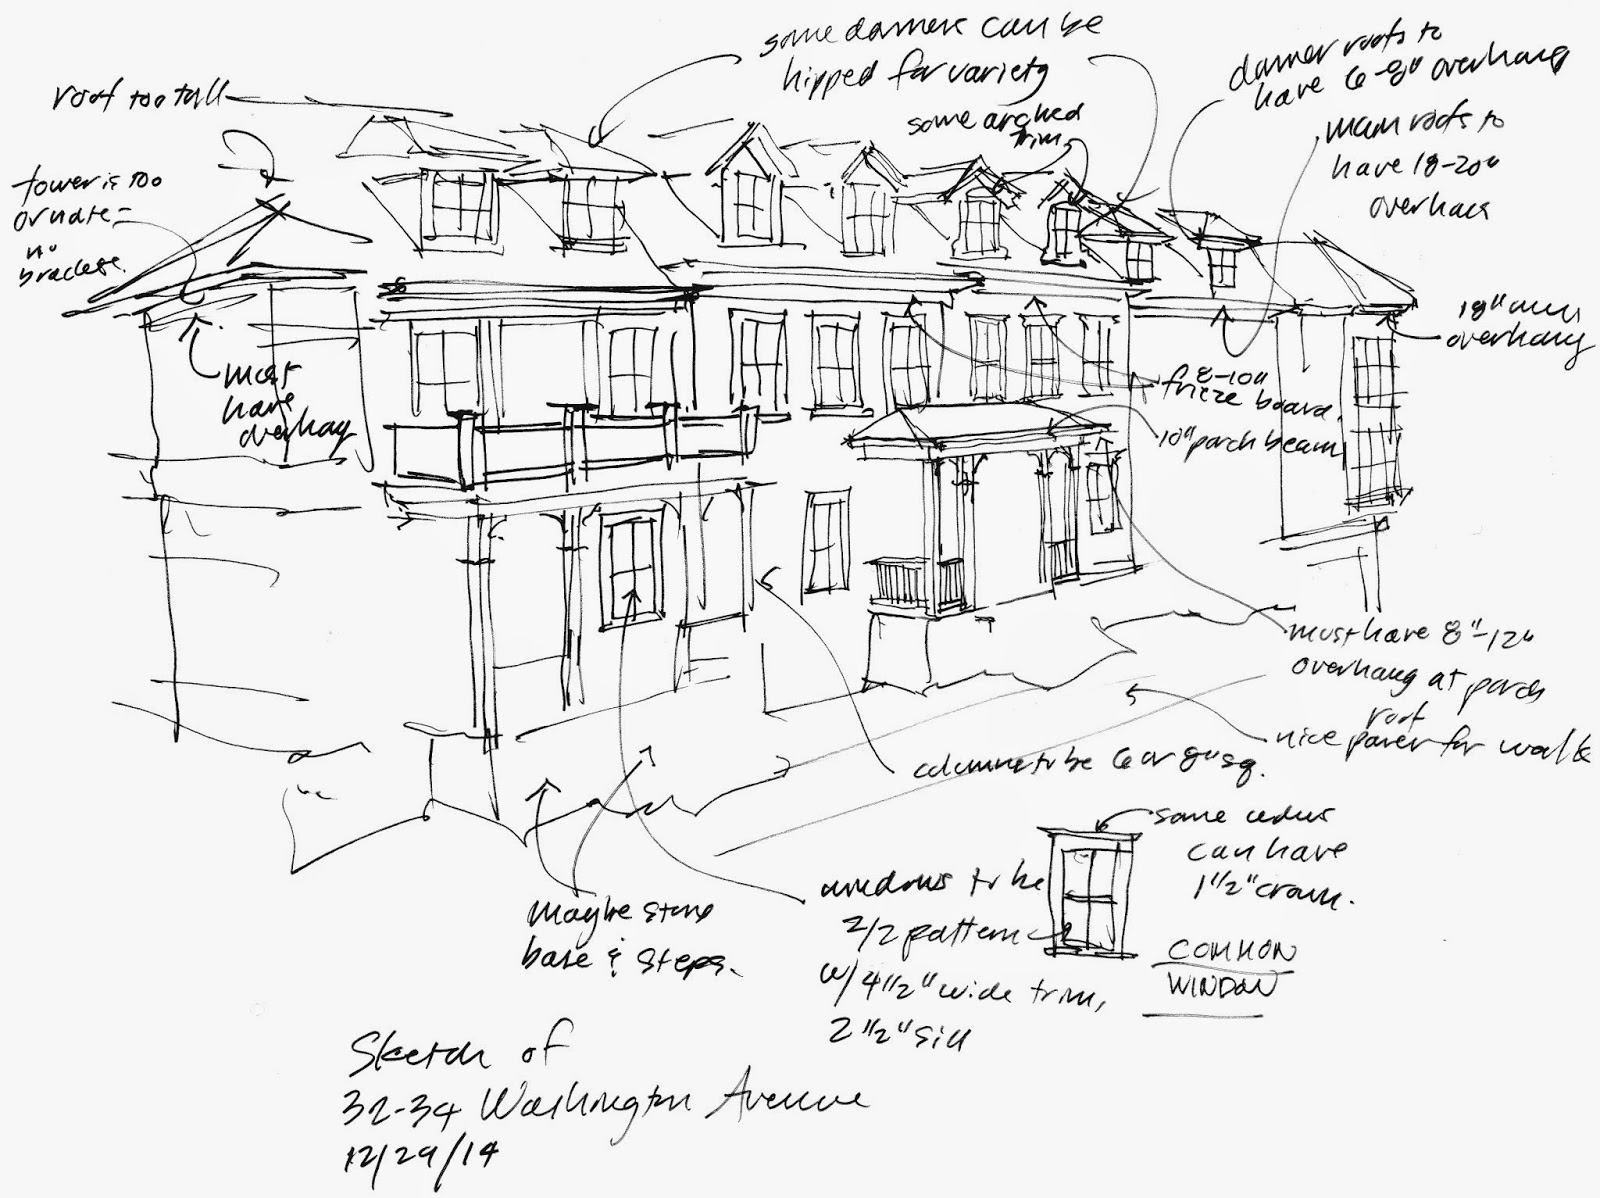 some dormers can be
hipped for variety
dormer roofs to
have 6-8" overhang
roof too tall
some arched
trim
main roofs to
have 18-20"
overhang
tower is too
ornate -
no
brackets.
must
have
overhang
18"
overhang
8-10"
frieze board.
10" porch beam
must have 8"-12"
overhang at porch
roof
nice paver for walk
columns to be 6 or 8" sq.
some
can have
1 1/2" crown.
windows to be
2/2 pattern
w/ 4 1/2" wide trim,
2 1/2" sill
COMMON
WINDOW
maybe stone
base & steps.
Sketch of
32-34 Washington Avenue
12/29/14